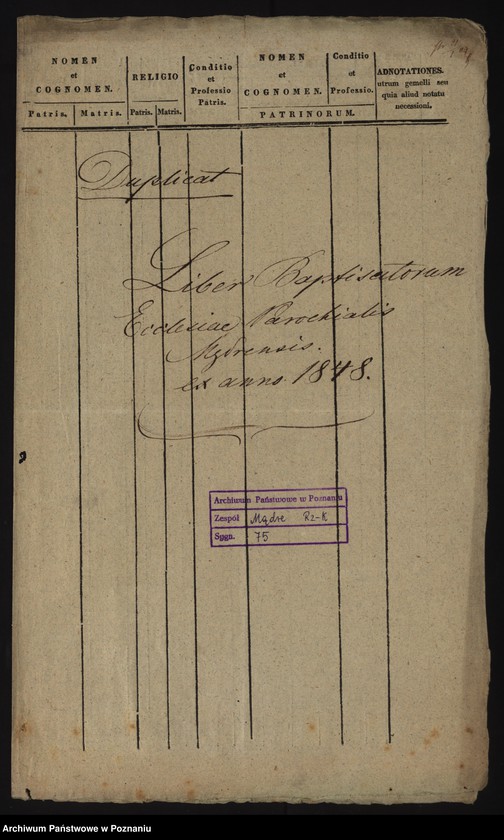 NOMEN
et
COGNOMEN.
Patris. Matris.
RELIGIO
Patris. Matris.
Conditio
et
Professio
Patris.
NOMEN
et
COGNOMEN.
Conditio
et
Professio.
PATRINORUM.
ADNOTATIONES.
utrum gemelli seu
quia aliud notatu
necessioni.
Duplicat
Liber Baptisatorum
Ecclesiae Parochialis
Mądrensis.
ex anno. 1848.
Archiwum Państwowe w Poznaniu
Zespół Mądre Rz-K
Sygn. 75
Archiwum Państwowe w Poznaniu
Archiwum Państwowe w Poznaniu